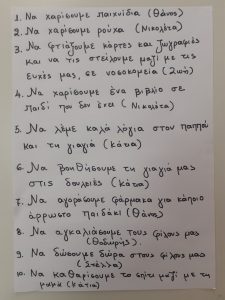 1. Να χαρίσουμε παιχνίδια (Θάνος)
2. Να χαρίσουμε ρούχα (Νικολέτα)
3. Να φτιάξουμε κάρτες και ζωγραφιές
και να τις στείλουμε μαζί με τις
ευχές μας, σε νοσοκομεία (Ζωή)
4. Να χαρίσουμε ένα βιβλίο σε
παιδί που δεν έχει (Νικολέτα)
5. Να λέμε καλά λόγια στον παππού
και τη γιαγιά (Κάτια)
6. Να βοηθήσουμε τη γιαγιά μας
στις δουλειές (Κάτια)
7. Να αγοράσουμε φάρμακα για κάποιο
άρρωστο παιδάκι (Θάνος)
8. Να αγκαλιάσουμε τους φίλους μας
(Θοδωρής).
9. Να δώσουμε δώρα στους φίλους μας
(Στέλλα)
10. Να καθαρίσουμε το σπίτι μαζί με τη
μαμά (Κάτια)